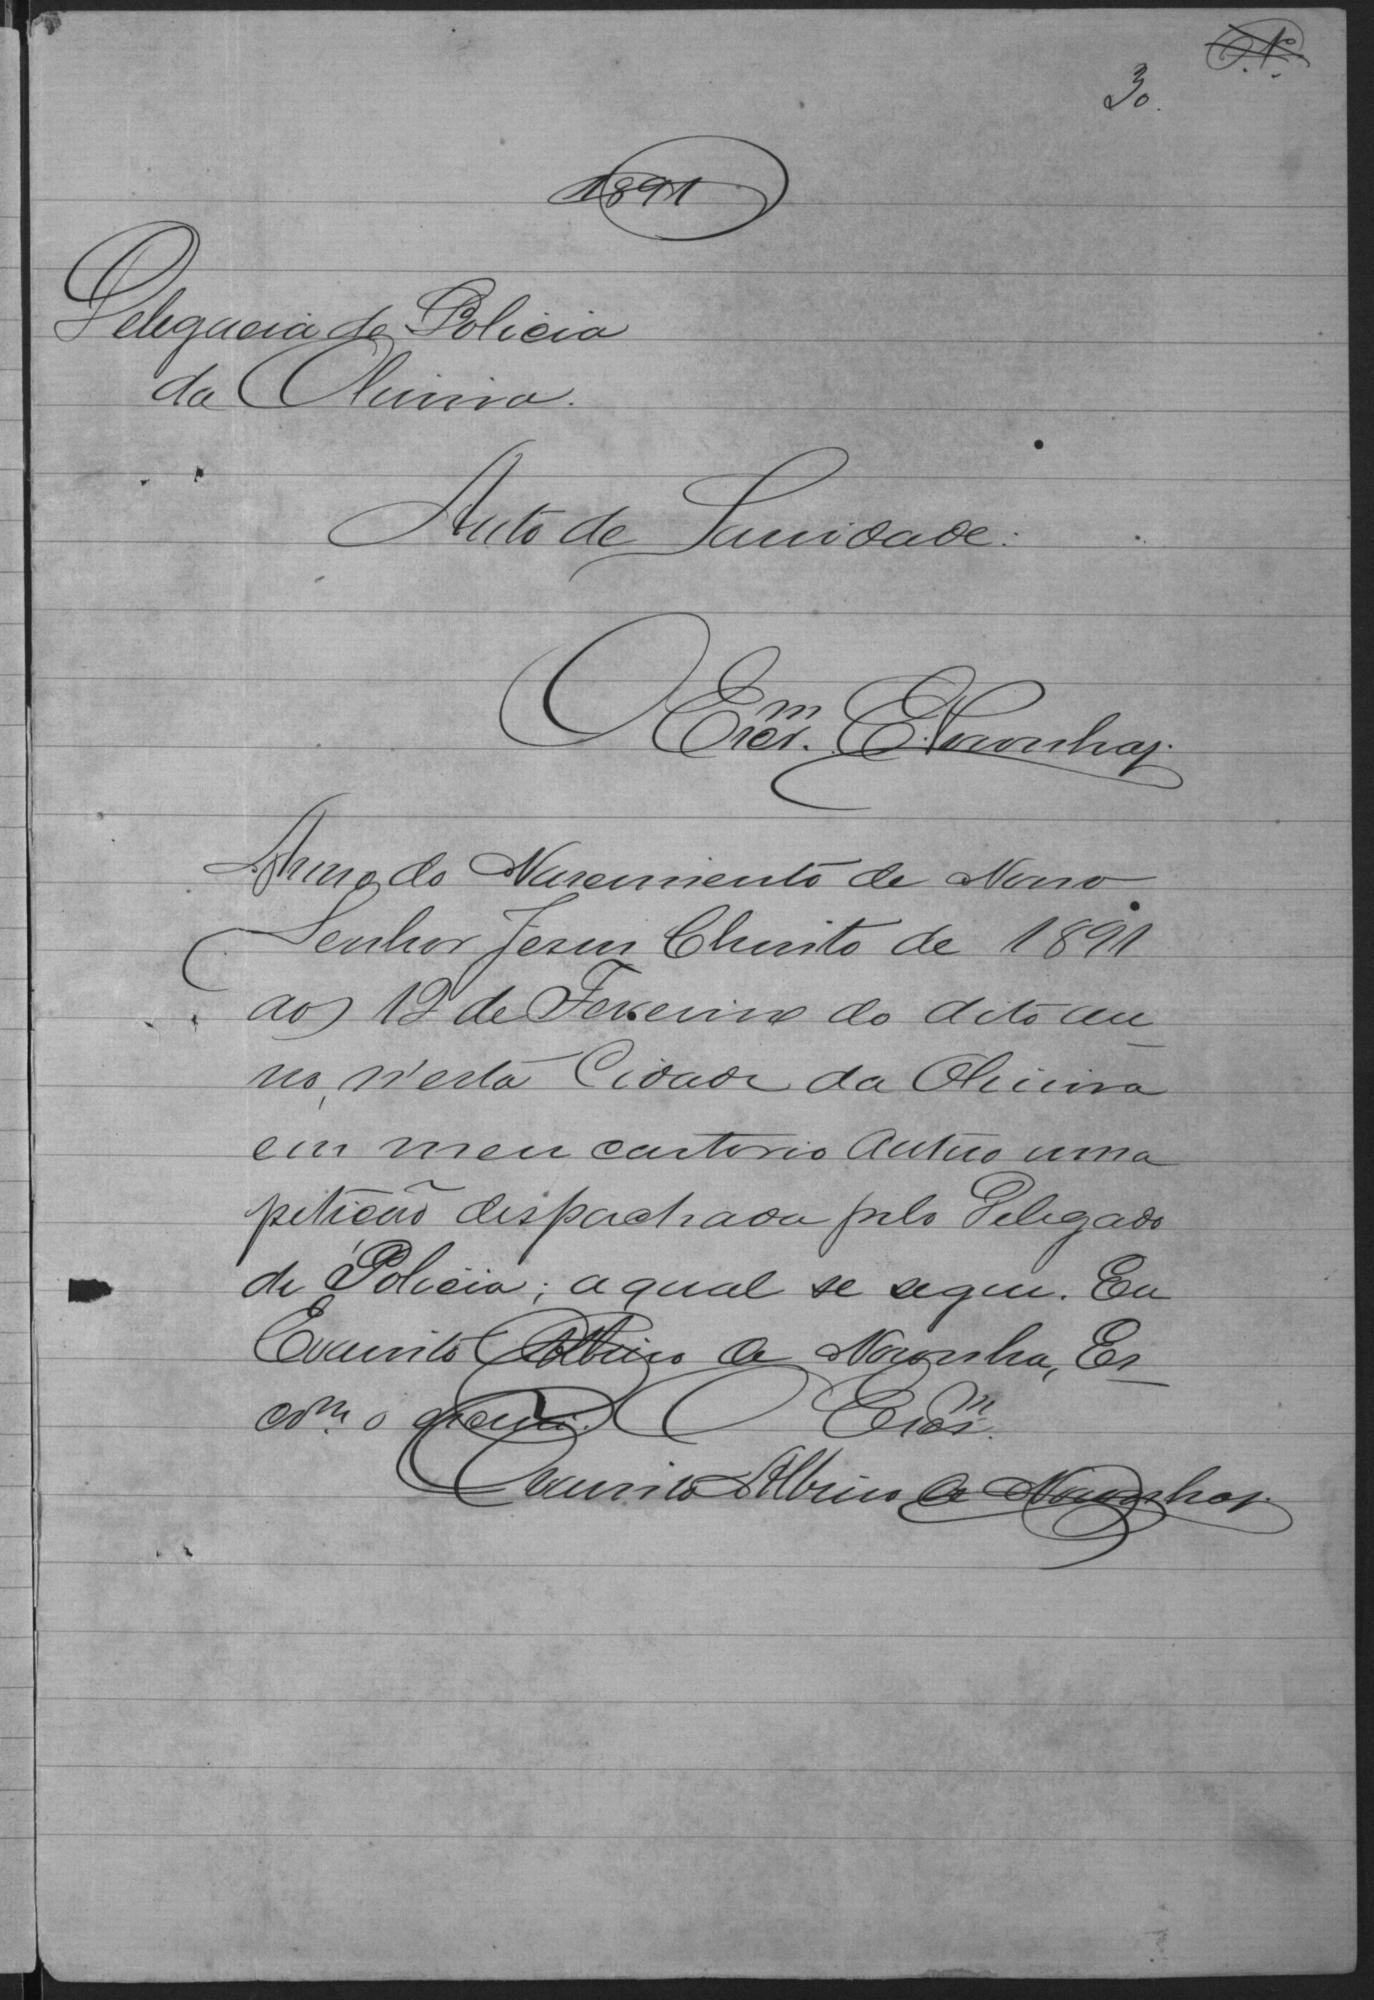 3o.
1891
Delegacia de Policia
da Oliveira.
Auto de Sanidade.
O Escr.m E. Noronha
Anno do Nascimento de Nosso
Senhor Jesus Christo de 1891
aos 12 de Fevereiro do dito an
no, n'esta Cidade da Oliveira
em meu cartorio autuo uma
petição despachada pelo Delegado
de Policia; a qual se segue. Eu
Evaristo Albino de Noronha, Es
cr.m o escrevi. O Escr.m
Evaristo Albino de Noronha